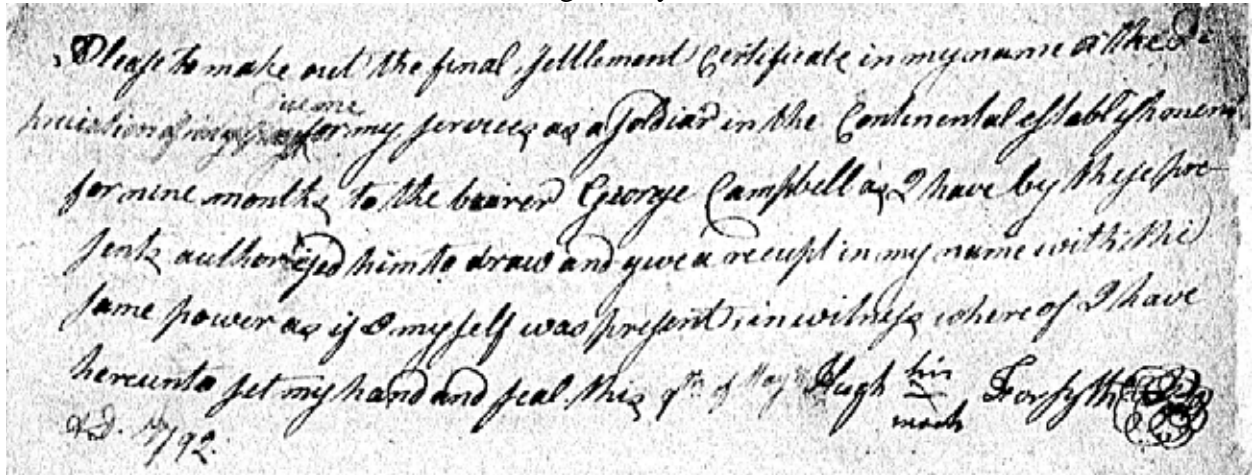 Please to make out the final settlement Certificate in my name or the De
due me
preciation of my pay for my services as a Soldiar in the Continental establishment
for nine months to the bearer George Campbell as I have by these pre
sents authorised him to draw and give a receipt in my name with the
same power as if I myself was present, in witness where of I have
hereunto set my hand and seal this 9th of May Hugh his
mark Forsyth
A.D. 1792.